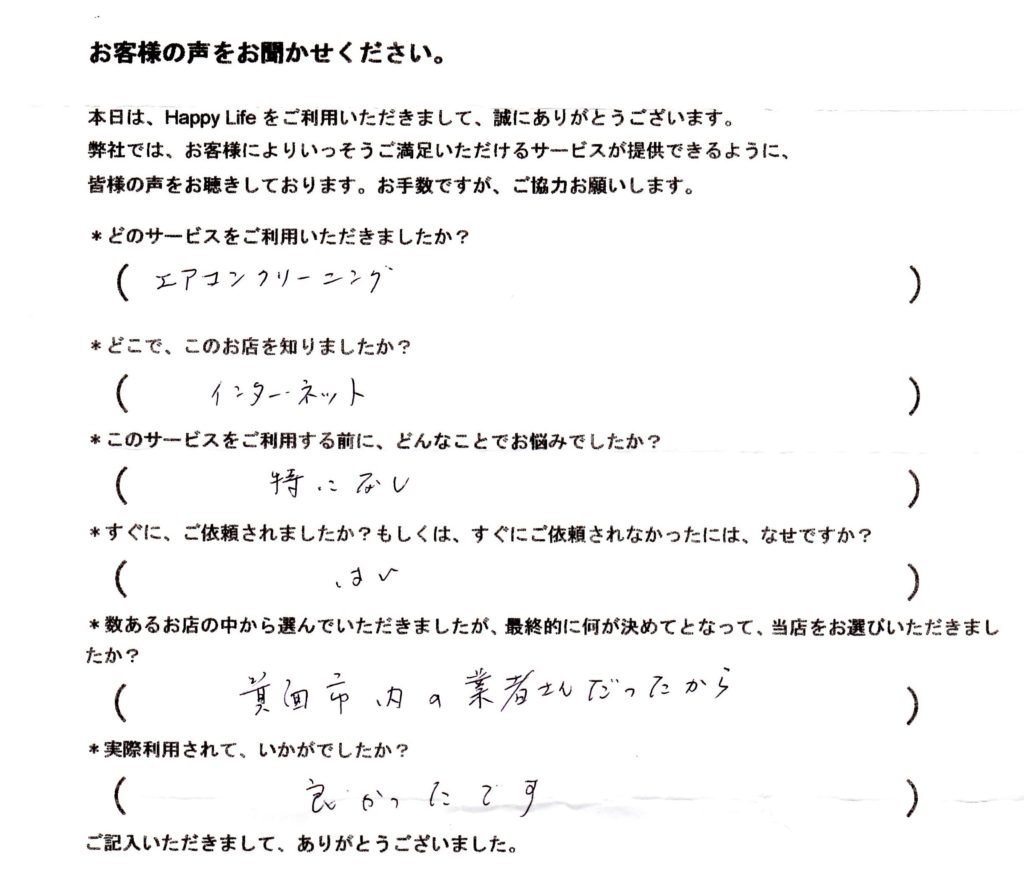 お客様の声をお聞かせください。
本日は、Happy Life をご利用いただきまして、誠にありがとうございます。
弊社では、お客様によりいっそうご満足いただけるサービスが提供できるように、
皆様の声をお聴きしております。お手数ですが、ご協力お願いします。
＊どのサービスをご利用いただきましたか？
（ エアコンクリーニング ）
＊どこで、このお店を知りましたか？
（ インターネット ）
＊このサービスをご利用する前に、どんなことでお悩みでしたか？
（ 特になし ）
＊すぐに、ご依頼されましたか？もしくは、すぐにご依頼されなかったには、なせですか？
（ はい ）
＊数あるお店の中から選んでいただきましたが、最終的に何が決めてとなって、当店をお選びいただきまし
たか？
（ 箕面市内の業者さんだったから ）
＊実際利用されて、いかがでしたか？
（ 良かったです ）
ご記入いただきまして、ありがとうございました。